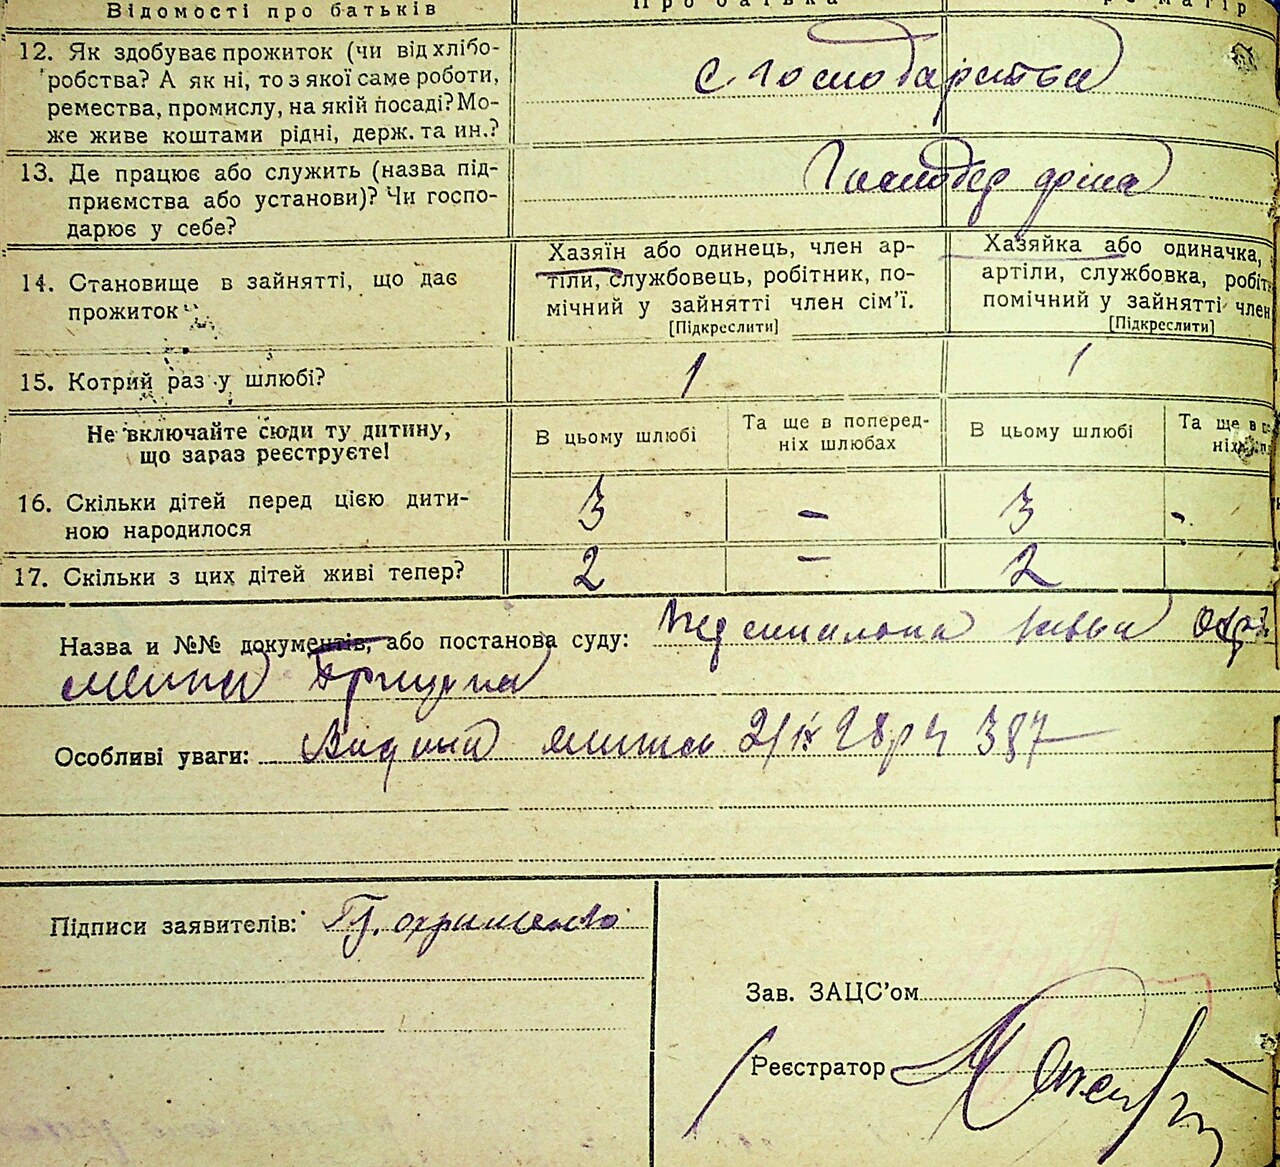 Відомості про батьків
Про батька
12. Як здобуває прожиток (чи від хлібо-
робства? А як ні, то з якої саме роботи,
ремества, промислу, на якій посаді? Мо-
же живе коштами рідні, держ. та ин.?
С. Господарства
13. Де працює або служить (назва під-
приємства або установи)? Чи госпо-
дарює у себе?
14. Становище в зайнятті, що дає
прожиток
Хазяїн або одинець, член ар-
тіли, службовець, робітник, по-
мічний у зайнятті член сім'ї.
[Підкреслити]
Хазяйка або одиначка,
артіли, службовка, робіт
помічний у зайнятті член
[Підкреслити]
15. Котрий раз у шлюбі?
1
1
Не включайте сюди ту дитину,
що зараз реєструєте!
В цьому шлюбі
Та ще в поперед-
ніх шлюбах
В цьому шлюбі
Та ще в
ніх
16. Скільки дітей перед цією дити-
ною народилося
3
-
3
-
17. Скільки з цих дітей живі тепер?
2
-
2
Назва и №№ документів, або постанова суду:
Грицька
Особливі уваги: Виданий 21/IX 28р ч 387
Підписи заявителів: Гр. Охрименко
Зав. ЗАЦС'ом
Реєстратор